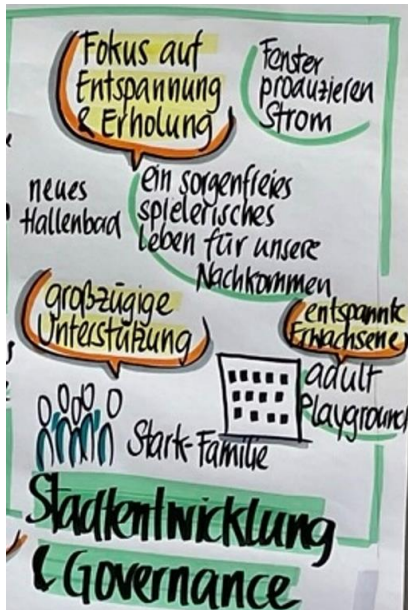 Fokus auf
Entspannung
& Erholung
Fenster
produzieren
Strom
neues
Hallenbad
ein sorgenfreies
spielerisches
Leben für unsere
Nachkommen
großzügige
Unterstützung
entspannte
Erwachsene
adult
Playground
Stark-Familie
Stadtentwicklung
& Governance